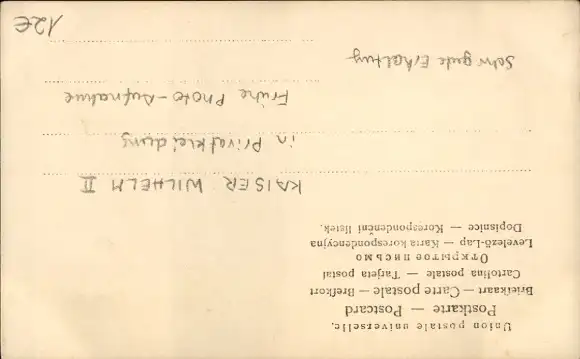 Union postale universelle.
Postkarte — Postcard
Briefkaart — Carte postale — Brefkort
Cartolina postale — Tarjeta postal
Открытое письмо
Levelező-Lap — Karta korespondencyjna
Dopisnice — Korespondenční lístek.
KAISER WILHELM II
in Privatkleidung
Frühe Photo-Aufnahme
Sehr gute Erhaltung
12€